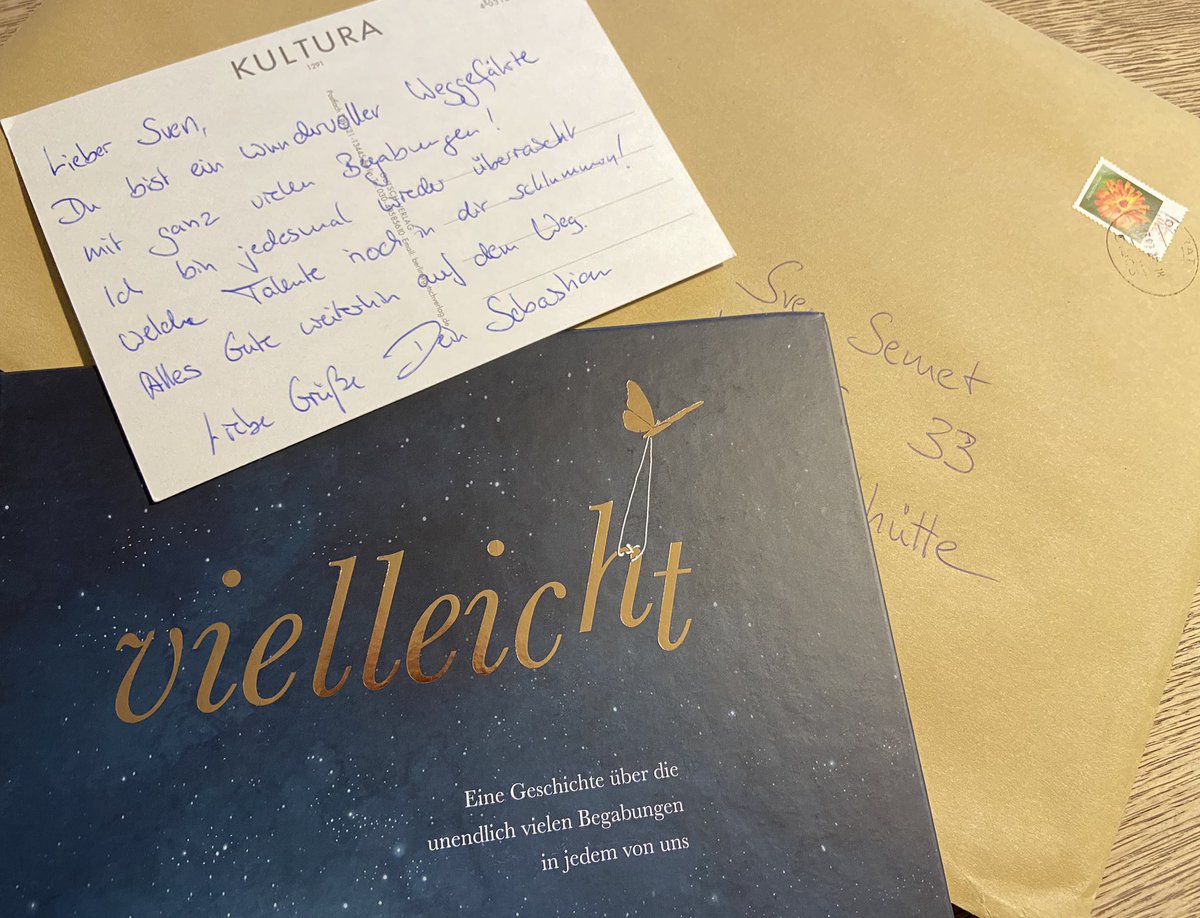 KULTURA
1291
Lieber Sven,
Du bist ein wundervoller Weggefährte
mit ganz vielen Begabungen!
Ich bin jedesmal wieder überrascht
welche Talente noch in dir schlummern!
Alles Gute weiterhin auf dem Weg.
Liebe Grüße Dein Sebastian
Sven Semet
33
hütte
vielleicht
Eine Geschichte über die
unendlich vielen Begabungen
in jedem von uns